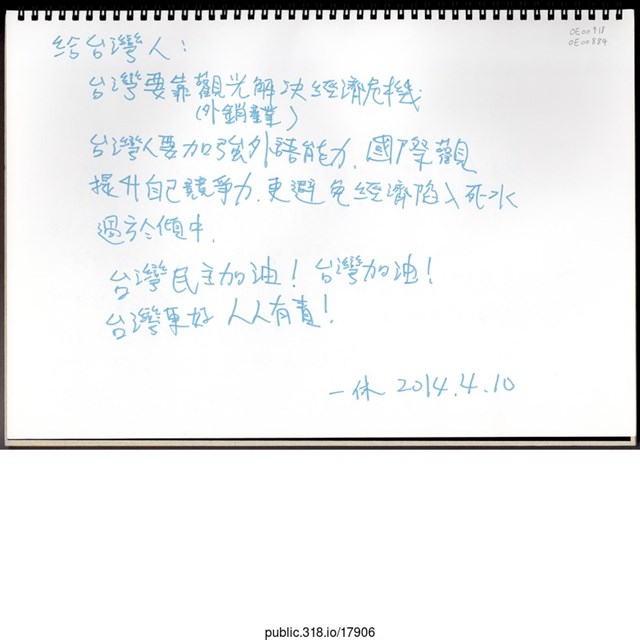 OE00918
OE00884
給台灣人：
台灣要靠觀光解決經濟危機
(外銷產業)
台灣人要加強外語能力.國際觀
提升自己競爭力.更避免經濟陷入死水
過於傾中.
台灣民主加油！台灣加油！
台灣更好 人人有責！
一休 2014.4.10
public.318.io/17906